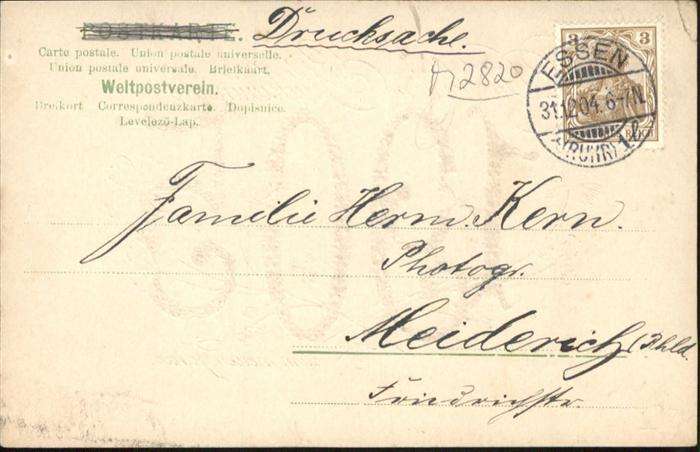 POSTKARTE. Drucksache.
Carte postale. Union postale universelle.
Union postale universale. Briefkaart.
Weltpostverein.
Brevkort Correspondenzkarte Dopisnice.
Levelező-Lap.
2820
3 3
ESSEN
31.12.04. 6-7N.
(RUHR)
Familie Herm. Kern.
Photogr.
Meiderich (Rhld.
Friedrichstr.